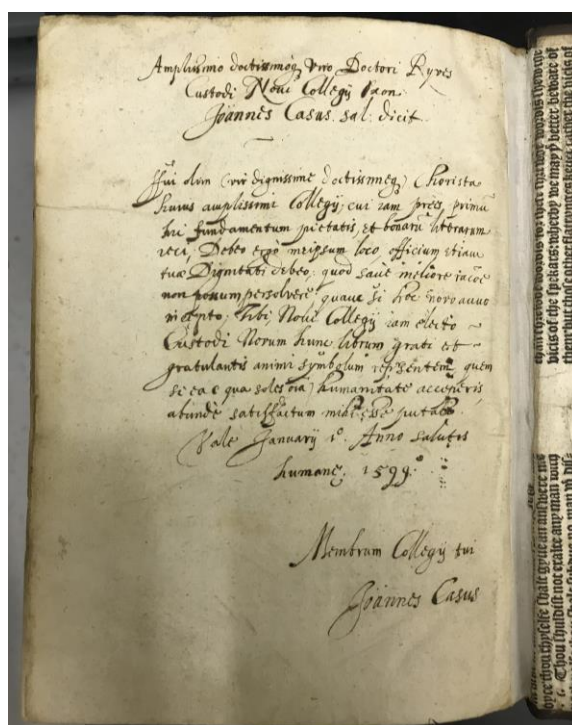 Amplissimo doctissimoq viro Doctori Ryves
Custodi Novi Collegij Oxon
Joannes Casus. sal: dicit.
Fui olim (vir dignissime doctissimeq) Chorista
huius amplissimi Collegij, cui iam præes, primū
ibi fundamentum pietatis, et bonarū literarum
ieci, Debeo ergo meipsum loco, officium etiam
tuæ Dignitati debeo: quod sane meliore
non possum persolvere, quam si hoc novo anno
incepto, tibi, Novi Collegij iam electo
Custodi Novum hunc librum grati et
gratulantis animi symbolum repsentem, quem
si ea (qua soles oīa) humanitate acceperis
abunde satisfactum mihi esse putabo.
Vale Januarij 1º. Anno salutis
humanę. 1599.
Membrum Collegij tui
Joannes Casus
vicis of the spekars: wherby we may þ better beware of